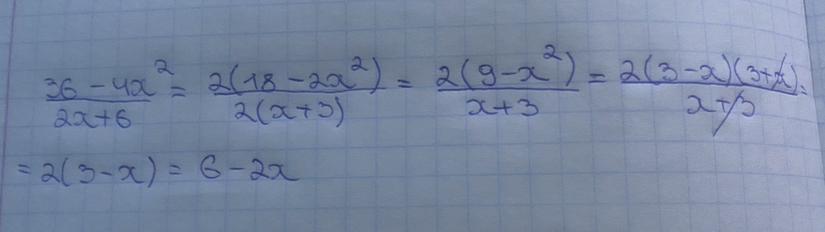 (36 - 4x²)/(2x+6) = 2(18 - 2x²)/2(x+3) = 2(9 - x²)/(x+3) = 2(3-x)(3+x)/(x+3) =
= 2(3-x) = 6 - 2x